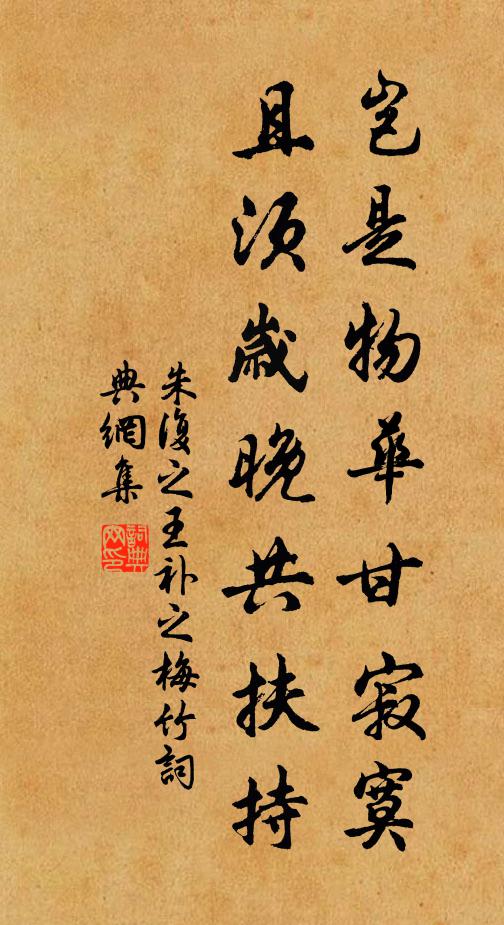 岂是物華甘寂寞
且须歲晚共扶持
朱復之王补之梅竹詞
典網集
詞典
网印